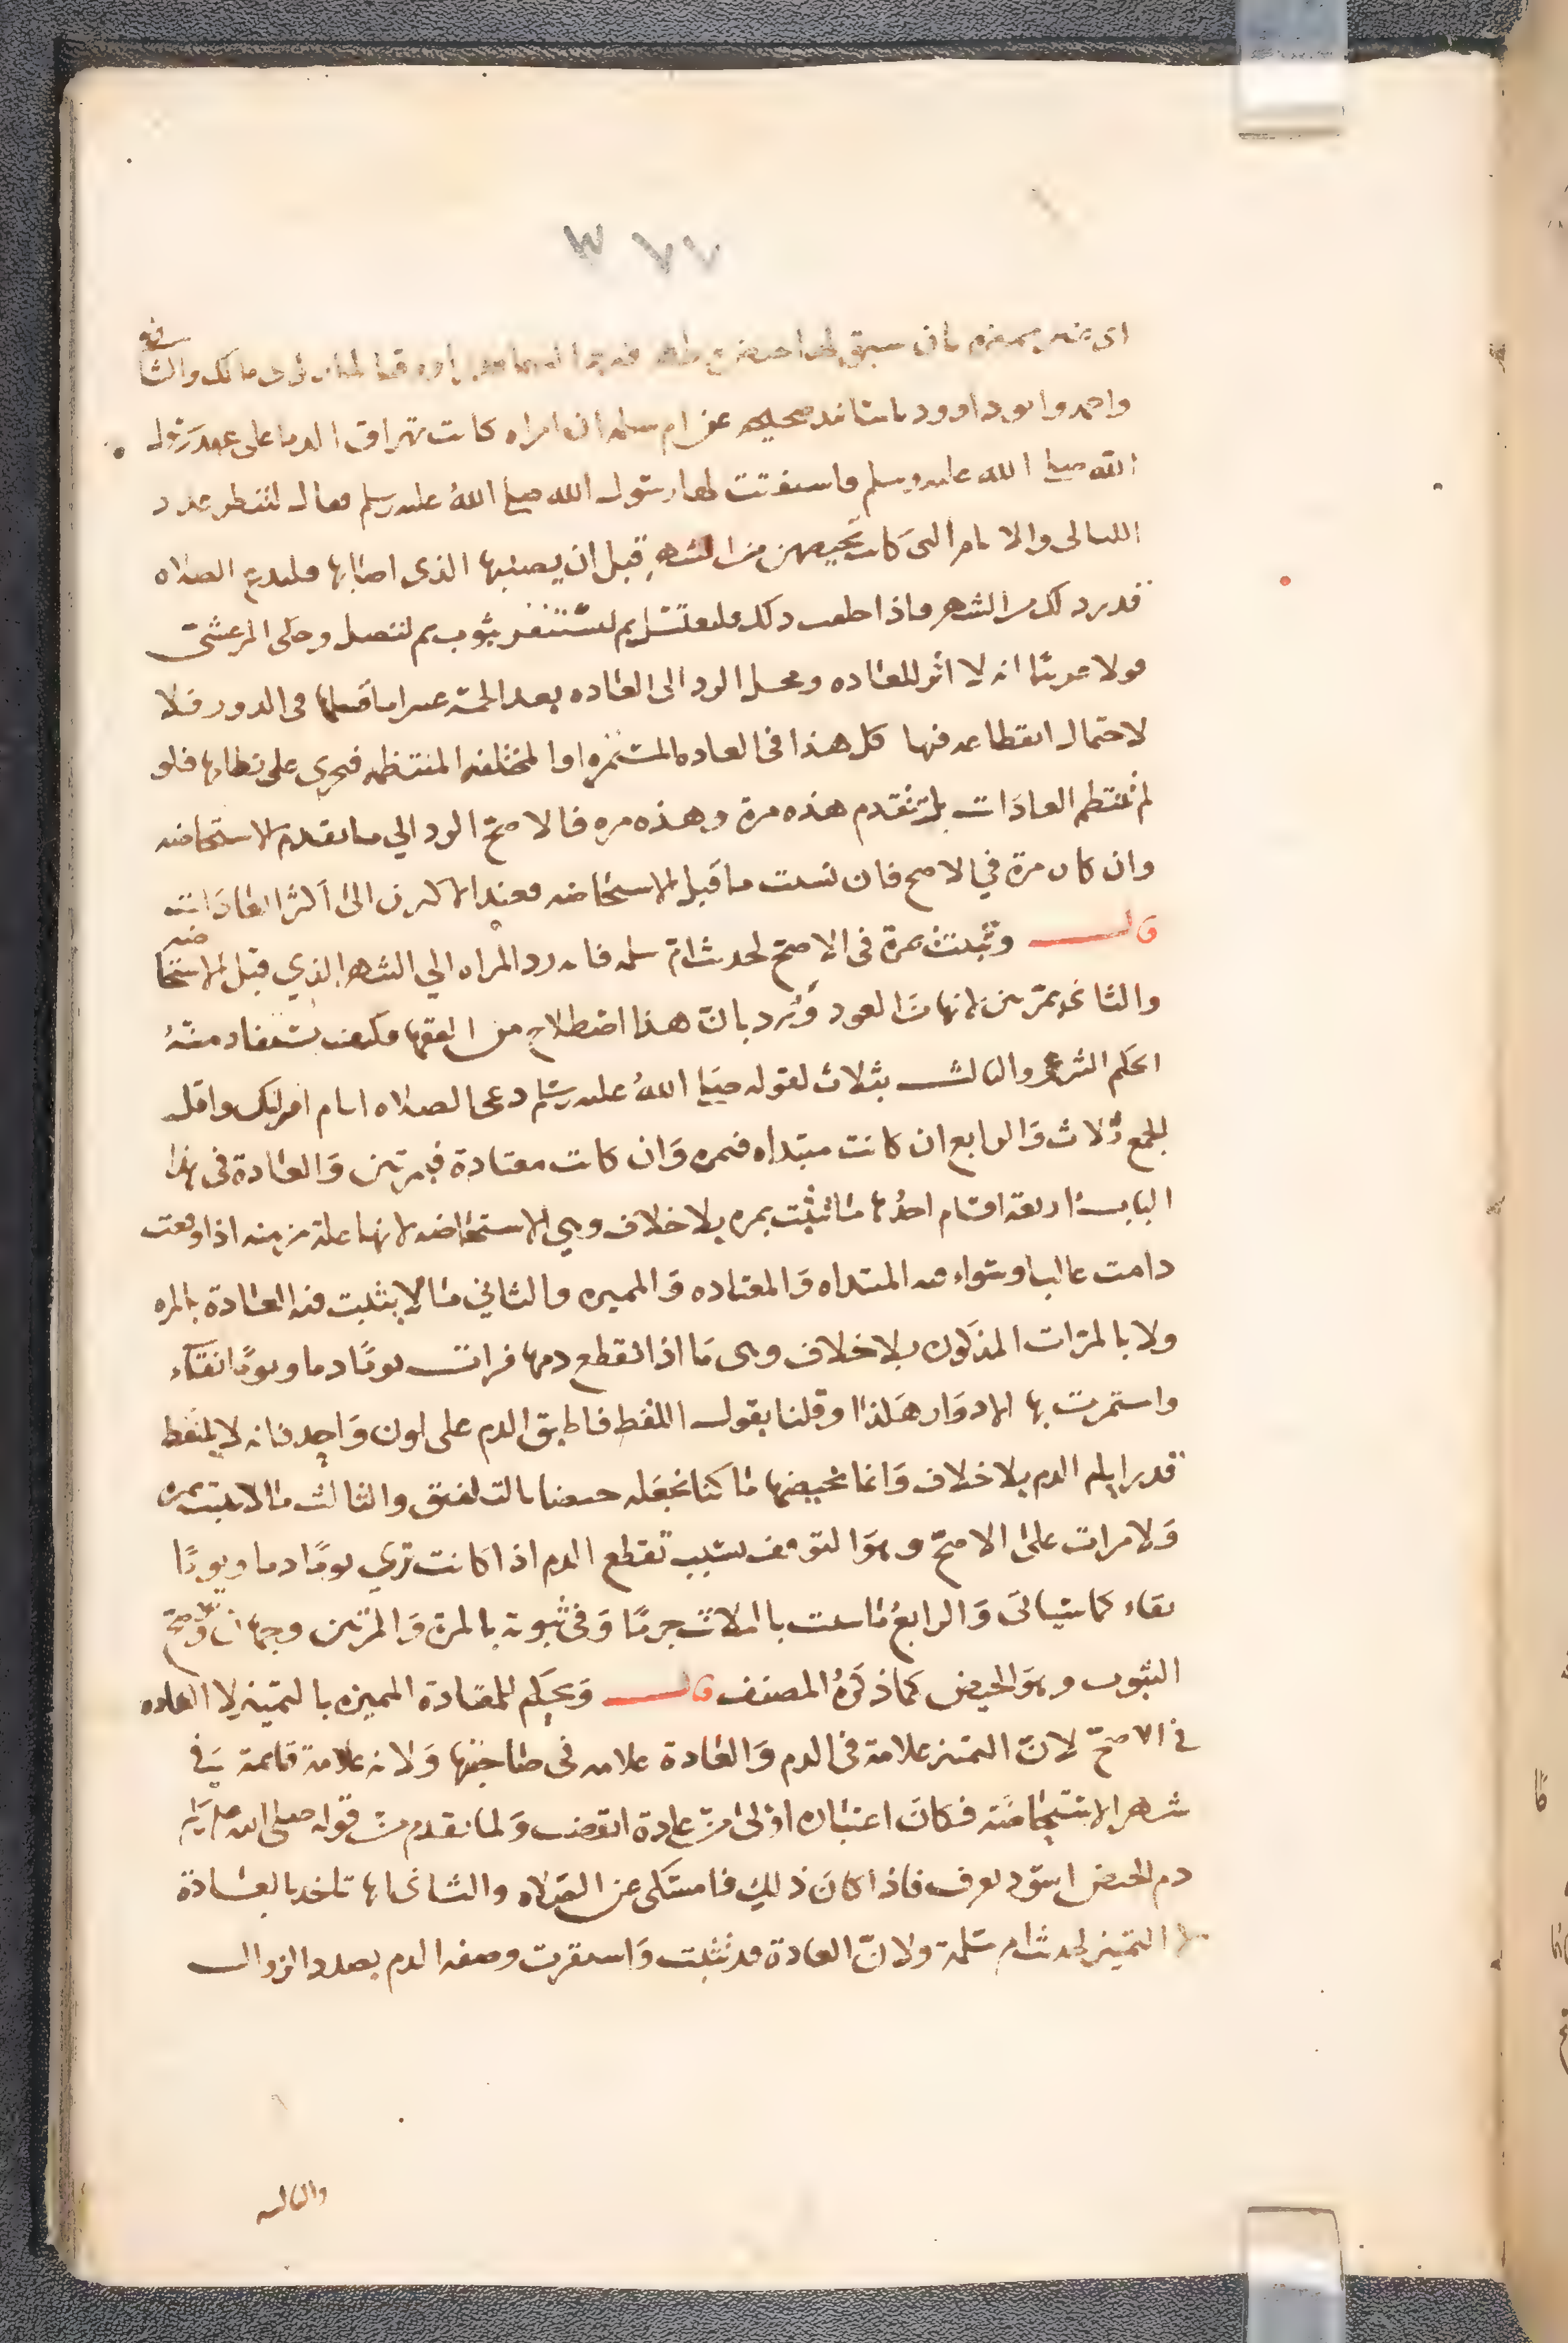 ٣٧٧
اى غير مميزه بان سبق لها حيض وطهر فترد اليهما قدرا ووقتا لما روى مالك والشافعي
واحمد وابو داوود باسانيد صحيحه عن ام سلمه ان امراه كانت تهراق الدما على عهد رسول
الله صلى الله عليه وسلم فاستفتت لها رسول الله صلى الله عليه وسلم فقال لتنظر عدد
الليالى والايام التى كانت تحيضهن من الشهر قبل ان يصيبها الذى اصابها فلتدع الصلاه
قدر ذلك من الشهر فاذا خلفت ذلك فلتغتسل ثم لتستثفر بثوب ثم لتصل وحكى المرعشى
قولا غريبا انه لا اثر للعاده ومحل الرد الى العاده بعد الخمسه عشر اما قبلها فى الدور فلا
لاحتمال انقطاعه فيها كل هذا فى العاده المستمره او المختلفه المنتظمه فيجرى على نظامها فلو
لم تنتظم العادات بل تتقدم هذه مرة وهذه مره فالاصح الرد الي ما تقدم الاستحاضه
وان كان مرة في الاصح فان نسيت ما قبل الاستحاضه فعند الاكثرين الى اكثر العادات
قال وتثبت بمرة فى الاصح لحديث ام سلمه فانه رد المراه الي الشهر الذي قبل الاستحاضه
والثاني بمرتين لانها من العود ورد بان هذا اصطلاح من الفقها فكيف يستفاد منه
الحكم الشرعى والثالث بثلاث لقوله صلى الله عليه وسلم دعى الصلاه ايام اقرائك واقل
الجمع ثلاث والرابع ان كانت مبتداه فبمره وان كانت معتادة فبمرتين والعادة فى هذا
الباب اربعة اقسام احدها ما تثبت بمره بلا خلاف وهي الاستحاضه لانها علة مزمنه اذا وقعت
دامت غالبا وسواء فيه المبتداه والمعتاده والمميزه والثاني ما لا يثبت فيه العادة بالمره
ولا بالمرات المذكوره بلا خلاف وهى ما اذا انقطع دمها فرات يوما دما ويوما نقاء
واستمرت بها الادوار هكذا وقلنا بقول اللقط فاطبق الدم على لون واحد فانه لا يلتقط
قدر ايام الدم بلا خلاف وانما نحيضها ما كنا نجعله حيضا بالتلفيق والثالث ما لا يثبت بمره
ولا مرات على الاصح وهو التوقف بسبب تقطع الدم اذا كانت تري يوما دما ويوما
نقاء كما سياتى والرابع ما يثبت بالثلاث جزما وفى ثبوته بالمرة والمرتين وجهان والاصح
الثبوت وهو الحيض كما ذكره المصنف قال ويحكم للمعتادة المميزه بالتمييز لا العاده
في الاصح لان التمييز علامة فى الدم والعادة علامه فى صاحبتها ولانه علامة قائمة في
شهر الاستحاضة فكان اعتباره اولى من عادة انقضت ولما تقدم من قوله صلى الله عليه وسلم
دم الحيض اسود يعرف فاذا كان ذلك فامسكى عن الصلاه والثاني انها تاخذ بالعادة
لا التمييز لحديث ام سلمة ولان العادة قد ثبتت واستقرت وصفه الدم بصدد الزوال
والثالث